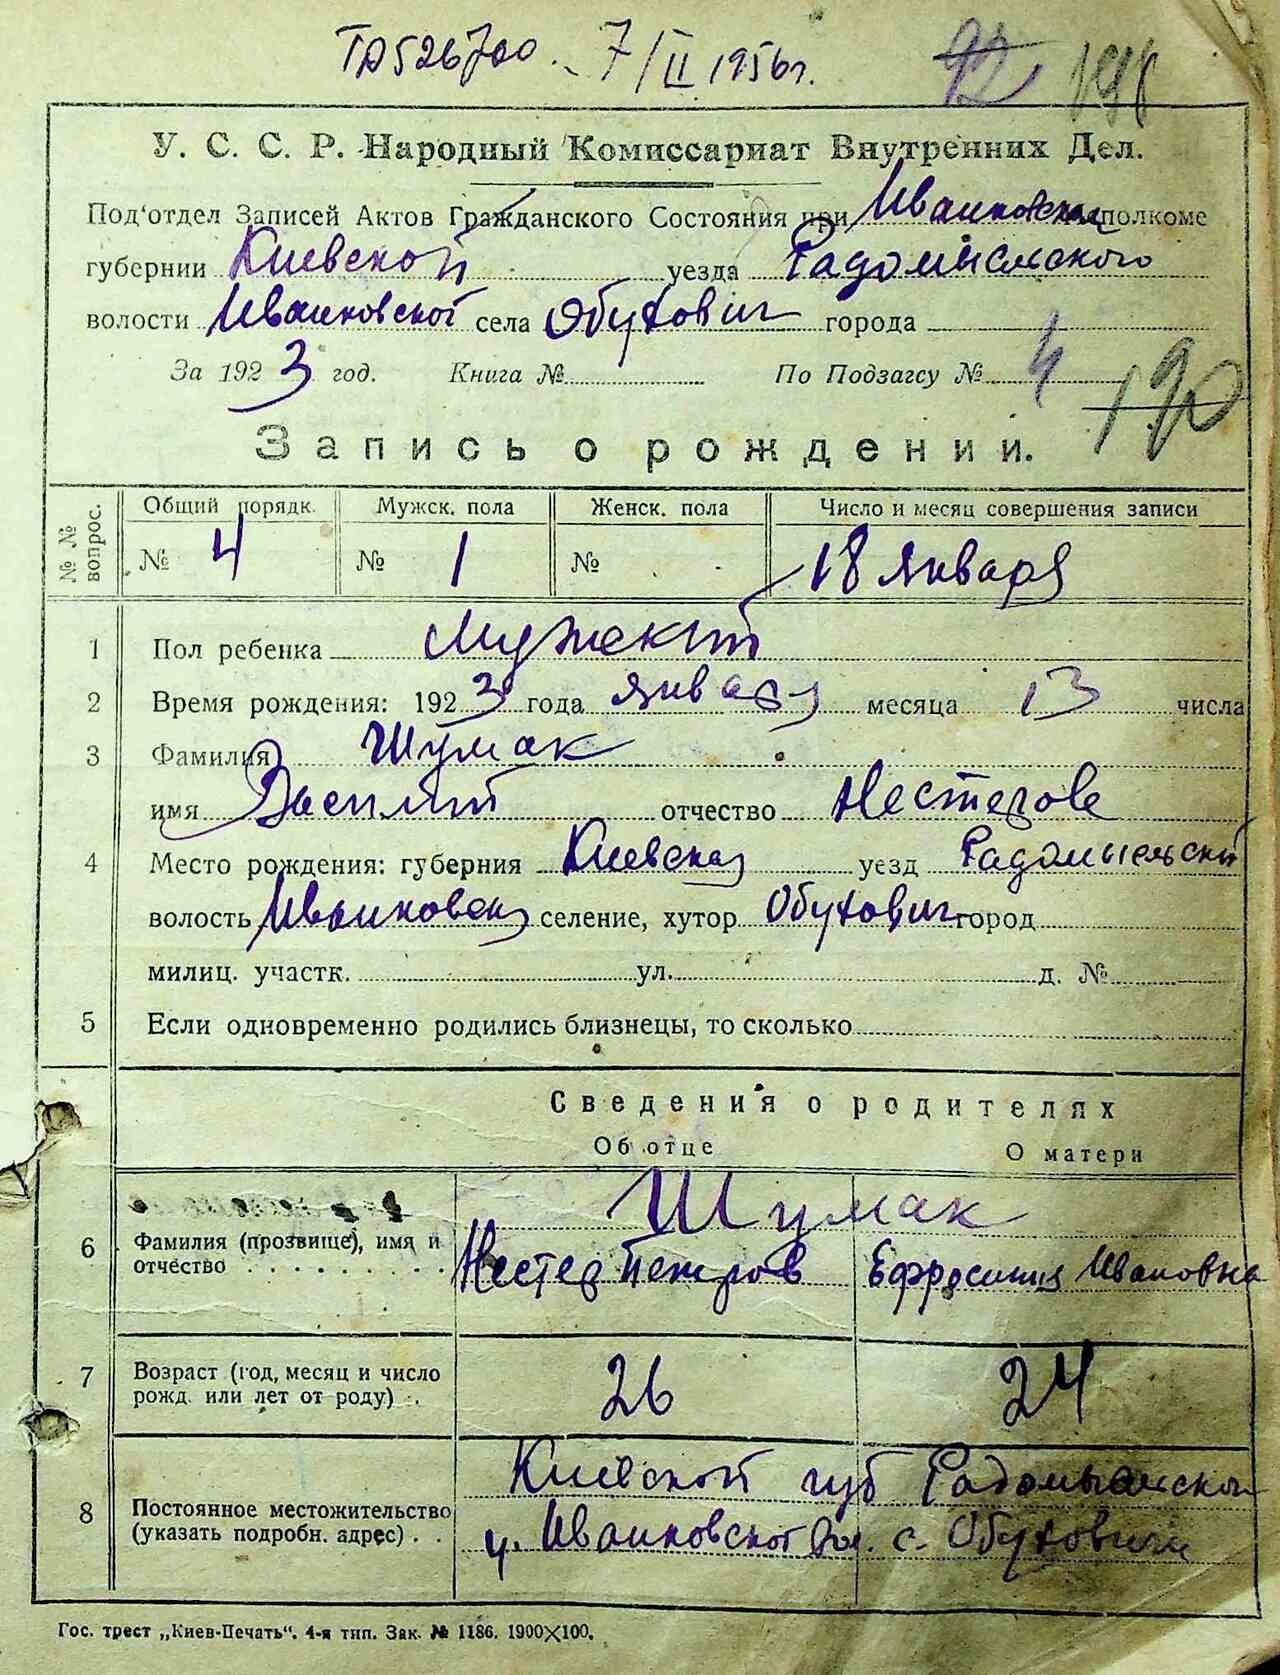 ТД526700. 7/II 1956г. 92
У. С. С. Р. Народный Комиссариат Внутренних Дел.
Под'отдел Записей Актов Гражданского Состояния при Иванковском исполкоме
губернии Киевской уезда Радомысльского
волости Иванковской села Обухович города
За 1923 год. Книга № По Подзагсу № 4
190
Запись о рождении.
№ № вопрос. Общий порядк. Мужск. пола Женск. пола Число и месяц совершения записи
№ 4 № 1 № 18 января
1 Пол ребенка Мужской
2 Время рождения: 1923 года января месяца 13 числа
3 Фамилия Шумак
имя Василий отчество Нестерове
4 Место рождения: губерния Киевская уезд Радомысльский
волость Иванковская селение, хутор Обухович город
милиц. участк. ул. д. №
5 Если одновременно родились близнецы, то сколько
Сведения о родителях
Об отце О матери
Шумак
6 Фамилия (прозвище), имя и отчество Нестер Петров Ефросиния Ивановна
7 Возраст (год, месяц и число рожд. или лет от роду) 26 24
8 Постоянное местожительство (указать подробн. адрес) Киевской губ Радомысльского
у. Иванковской вол. с. Обуховичи
Гос. трест „Киев-Печать". 4-я тип. Зак. № 1186. 1900×100.